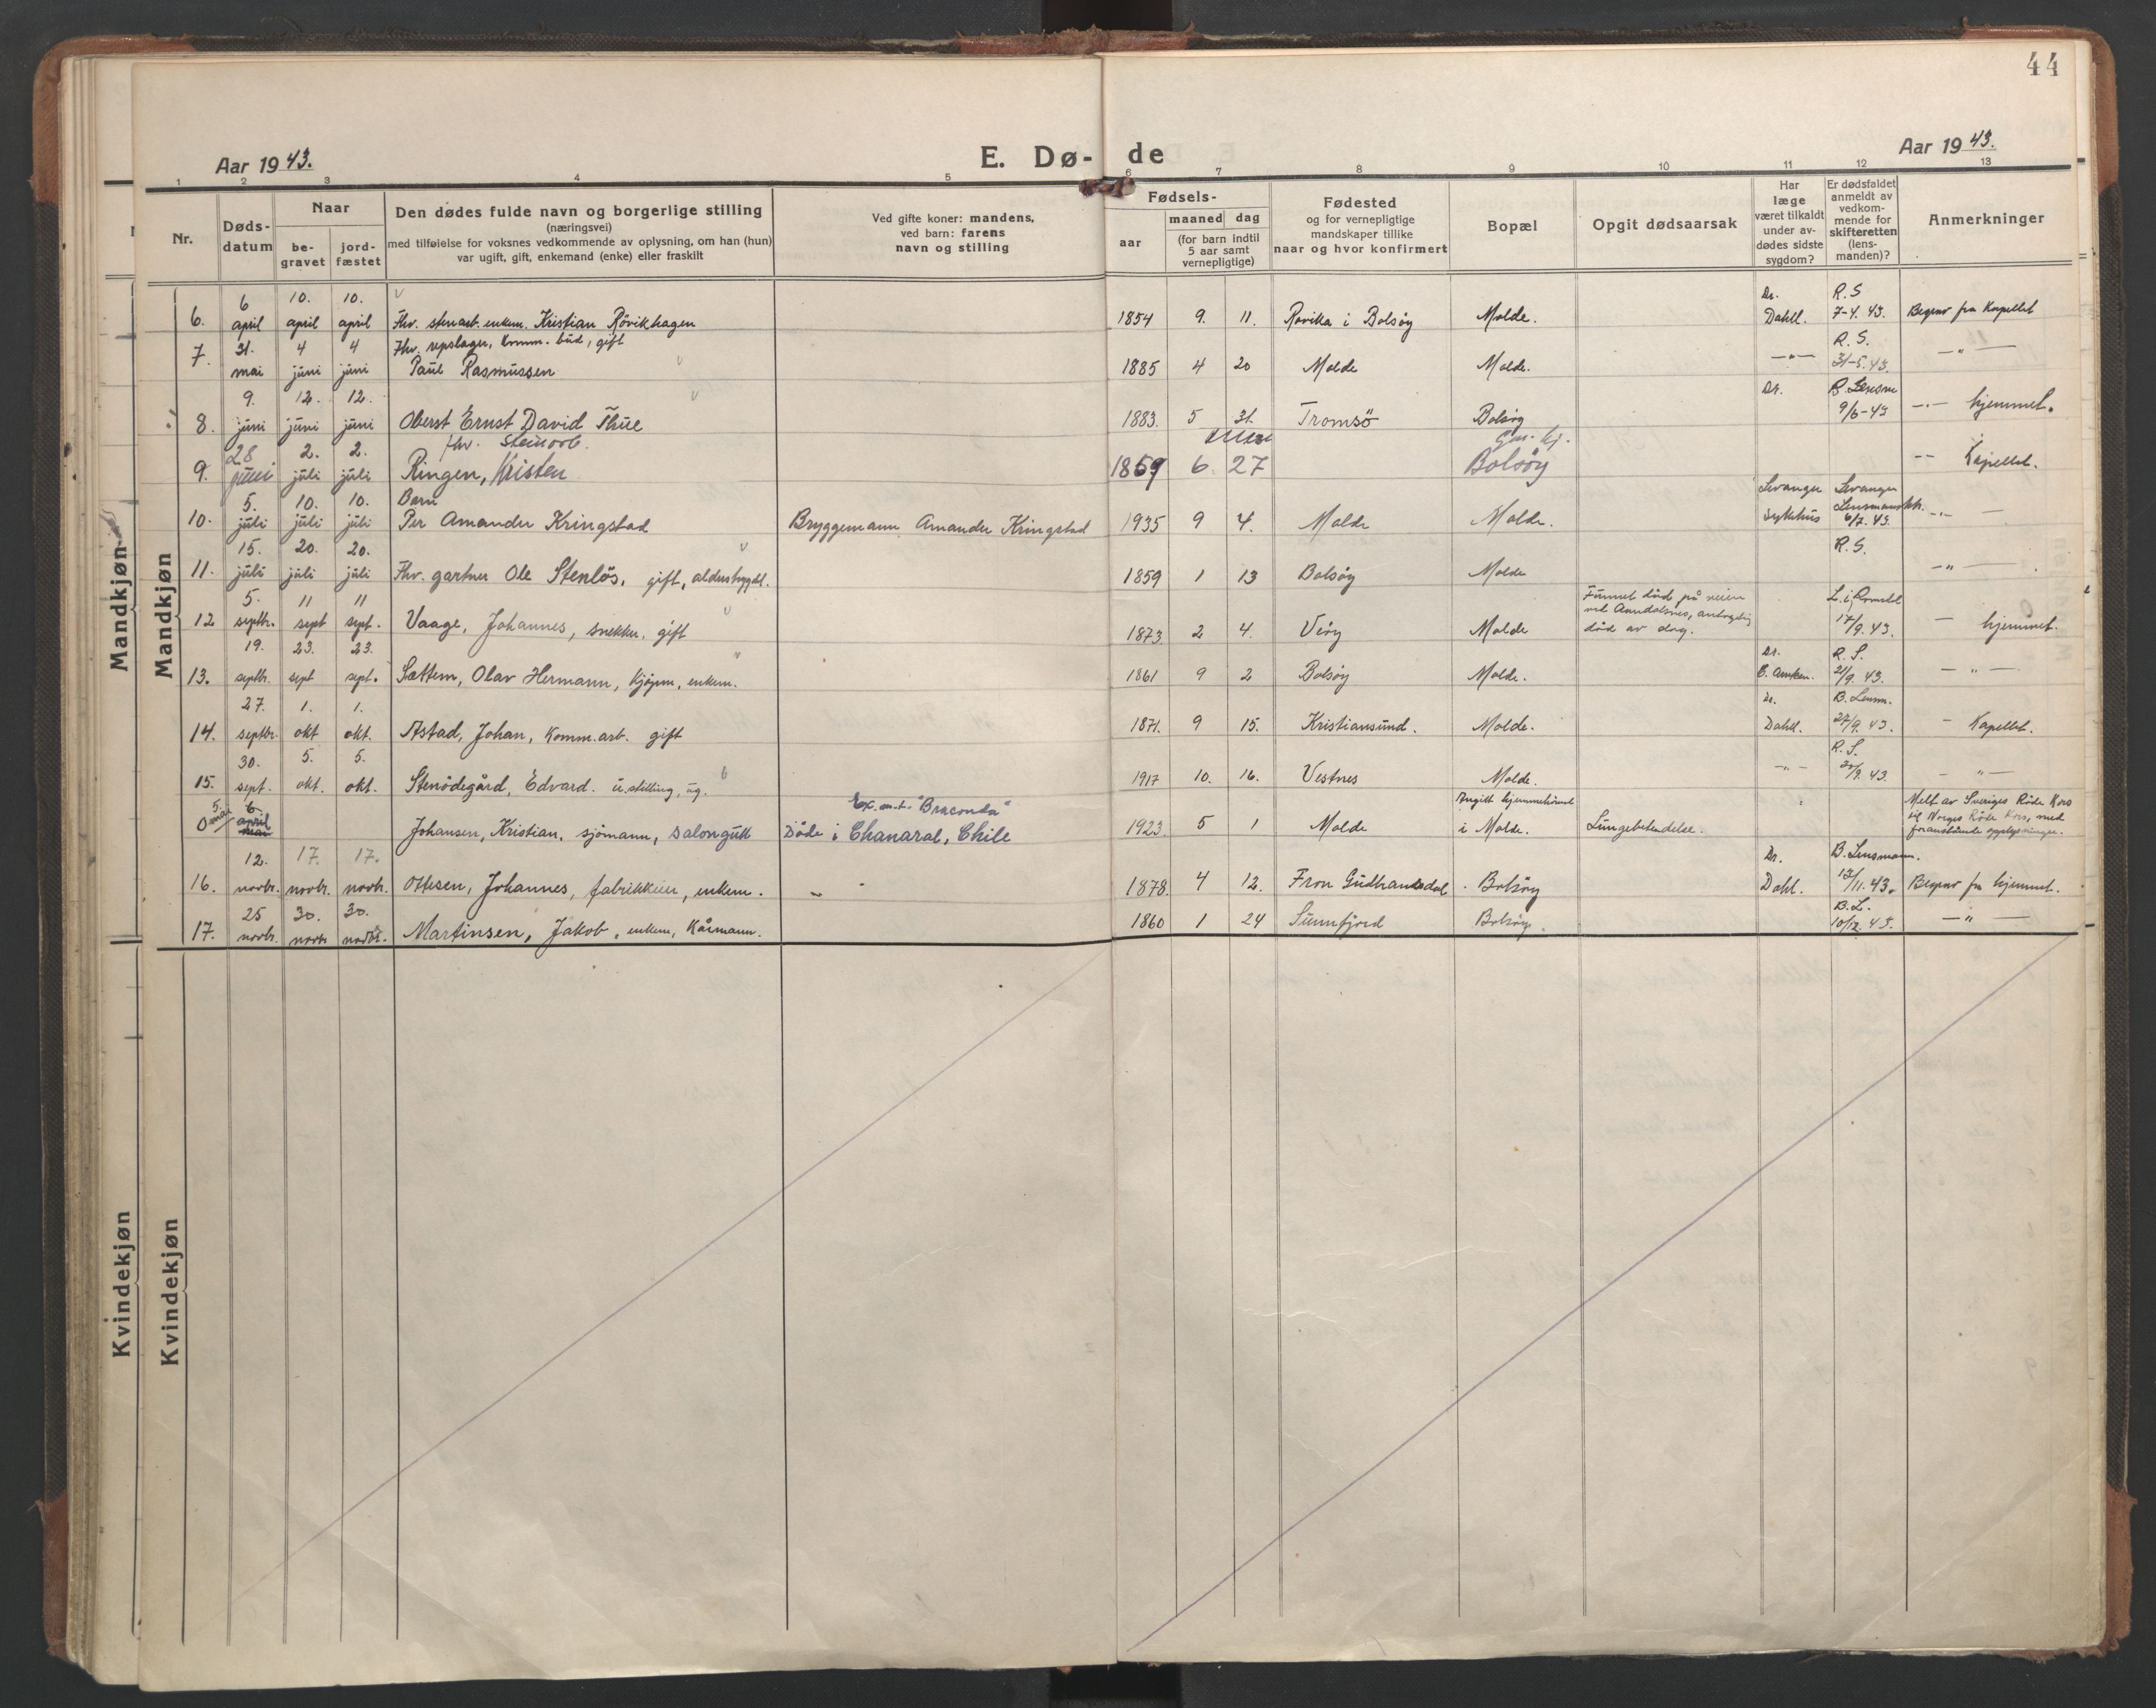 44
Aar 1943.
E. Dø-
de
Aar 1943.
1 2 3 4 5 6 7 8 9 10 11 12 13
Nr.
Døds-
datum
Naar
be-
gravet
jord-
fæstet
Den dødes fulde navn og borgerlige stilling
(næringsvei)
med tilføielse for voksnes vedkommende av oplysning, om han (hun)
var ugift, gift, enkemand (enke) eller fraskilt
Ved gifte koner: mandens,
ved barn: farens
navn og stilling
Fødsels-
aar
maaned dag
(for barn indtil
5 aar samt
vernepligtige)
Fødested
og for vernepligtige
mandskaper tillike
naar og hvor konfirmert
Bopæl
Opgit dødsaarsak
Har
læge
været tilkaldt
under av-
dødes sidste
sygdom?
Er dødsfaldet
anmeldt av
vedkom-
mende for
skifteretten
(lens-
manden)?
Anmerkninger
Mandkjøn
Mandkjøn
Kvindekjøn
Kvindekjøn
6 10. 10. Dr. R.S
6. april april april Fhv. stenarb. enkem. Kristian Rövikhagen 1854 9. 11. Rovika i Bolsöy Molde. Dahll. 7-4. 43. Begrav fra Kapellet
31. 4 4 Fhv. repslager, Komm. bud, gift R. S.
7. mai juni juni Paul Rasmussen 1885 4 20 Molde Molde. —"— 31-5. 43. —"—
9. 12. 12. Dr.
8. juni juni juni Oberst Ernst David Thue 1883. 5 31. Tromsö Bolsöy 9/6-43 —"— hjemmet.
28 2. 2. fhv. steinarb.
9. juni juli juli Ringen, Kristen 1859 6 27 Bolsöy -"- Kapellet.
5. 10. 10. Barn Levanger Levanger
10. juli juli juli Per Amander Kringstad Bryggemann Amander Kringstad 1935 9 4. Molde Molde. sykehus 6/7. 43. -"- —
15. 20. 20. R. S.
11. juli juli juli Fhv. gartner Ole Stenlös, gift, alderstrygdet. 1859 1 13 Bolsöy Molde —"—
5. 11 11 Funnet död på veien
12 septbr. sept sept. Vaage, Johannes, snekker, gift 1873 2 4. Veöy Molde ved Aandalsnes, antagelig död av slag. 17/9. 43. — hjemmet.
19. 23. 23. Dr. R. S.
13. septbr. sept sept. Sættem, Olav Hermann, kjöpm, enkem. 1861 9 2 Bolsöy Molde. 21/9. 43. —"—
27. 1. 1. Dr. B. Lensm.
14. septbr. okt okt. Astad, Johan, Komm.arb. gift 1871. 9 15. Kristiansund. Molde. Dahll. 27/9. 43. — Kapellet.
30. 5. 5. R. S.
15. sept. okt. okt. Stenödegård, Edvard. u. stilling, ug. 1917 10. 16. Vestnes Molde. —"— 30/9. 43 —"—
5. mai 6 april mai Ex. m.t. "Braconda" Angitt hjemmehörende Melt av Sveriges Röde Kors
0 Johansen, Kristian, sjömann, salongutt Döde i Chanaral, Chile 1923 5 1 Molde i Molde. Lungebetendelse. til Norges Röde Kors, med
foranstående opplysninger.
12. 17. 17. Dr. B. Lensmann.
16. novbr. novbr. novbr. Ottesen, Johannes, fabrikkeier, enkem. 1878. 4 12. Fron Gudbrandsdal Bolsöy Dahl. 12/11. 43. Begrav fra hjemmet.
25 30. 30. B.L.
17. novbr. novbr novbr. Martinsen, Jakob, enkem, Kårmann. 1860 1 24 Sunnfjord Bolsöy. 10/12. 43. —"—